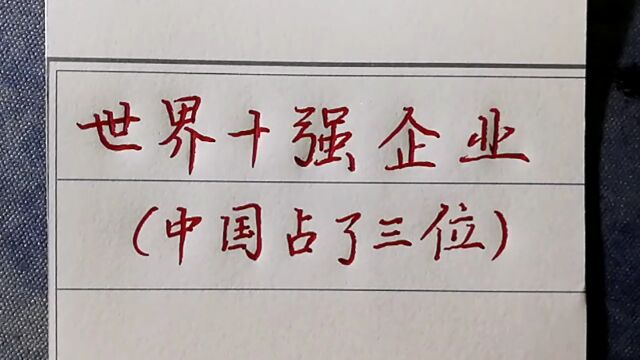 世界十强企业
(中国占了三位)